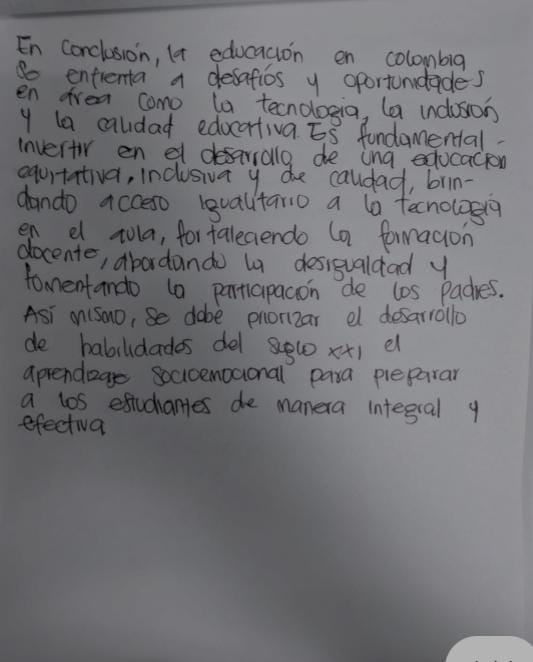 En conclusión, la educación en colombia
se enfrenta a desafíos y oportunidades
en área como la tecnología, la inclusión
y la calidad educativa. Es fundamental
invertir en el desarrollo de una educación
equitativa, inclusiva y de calidad, brin-
dando acceso igualitario a la tecnología
en el aula, fortaleciendo la formación
docente, abordando la desigualdad y
fomentando la participación de los padres.
Así mismo, se debe priorizar el desarrollo
de habilidades del siglo xx1 el
aprendizaje socioemocional para preparar
a los estudiantes de manera integral y
efectiva